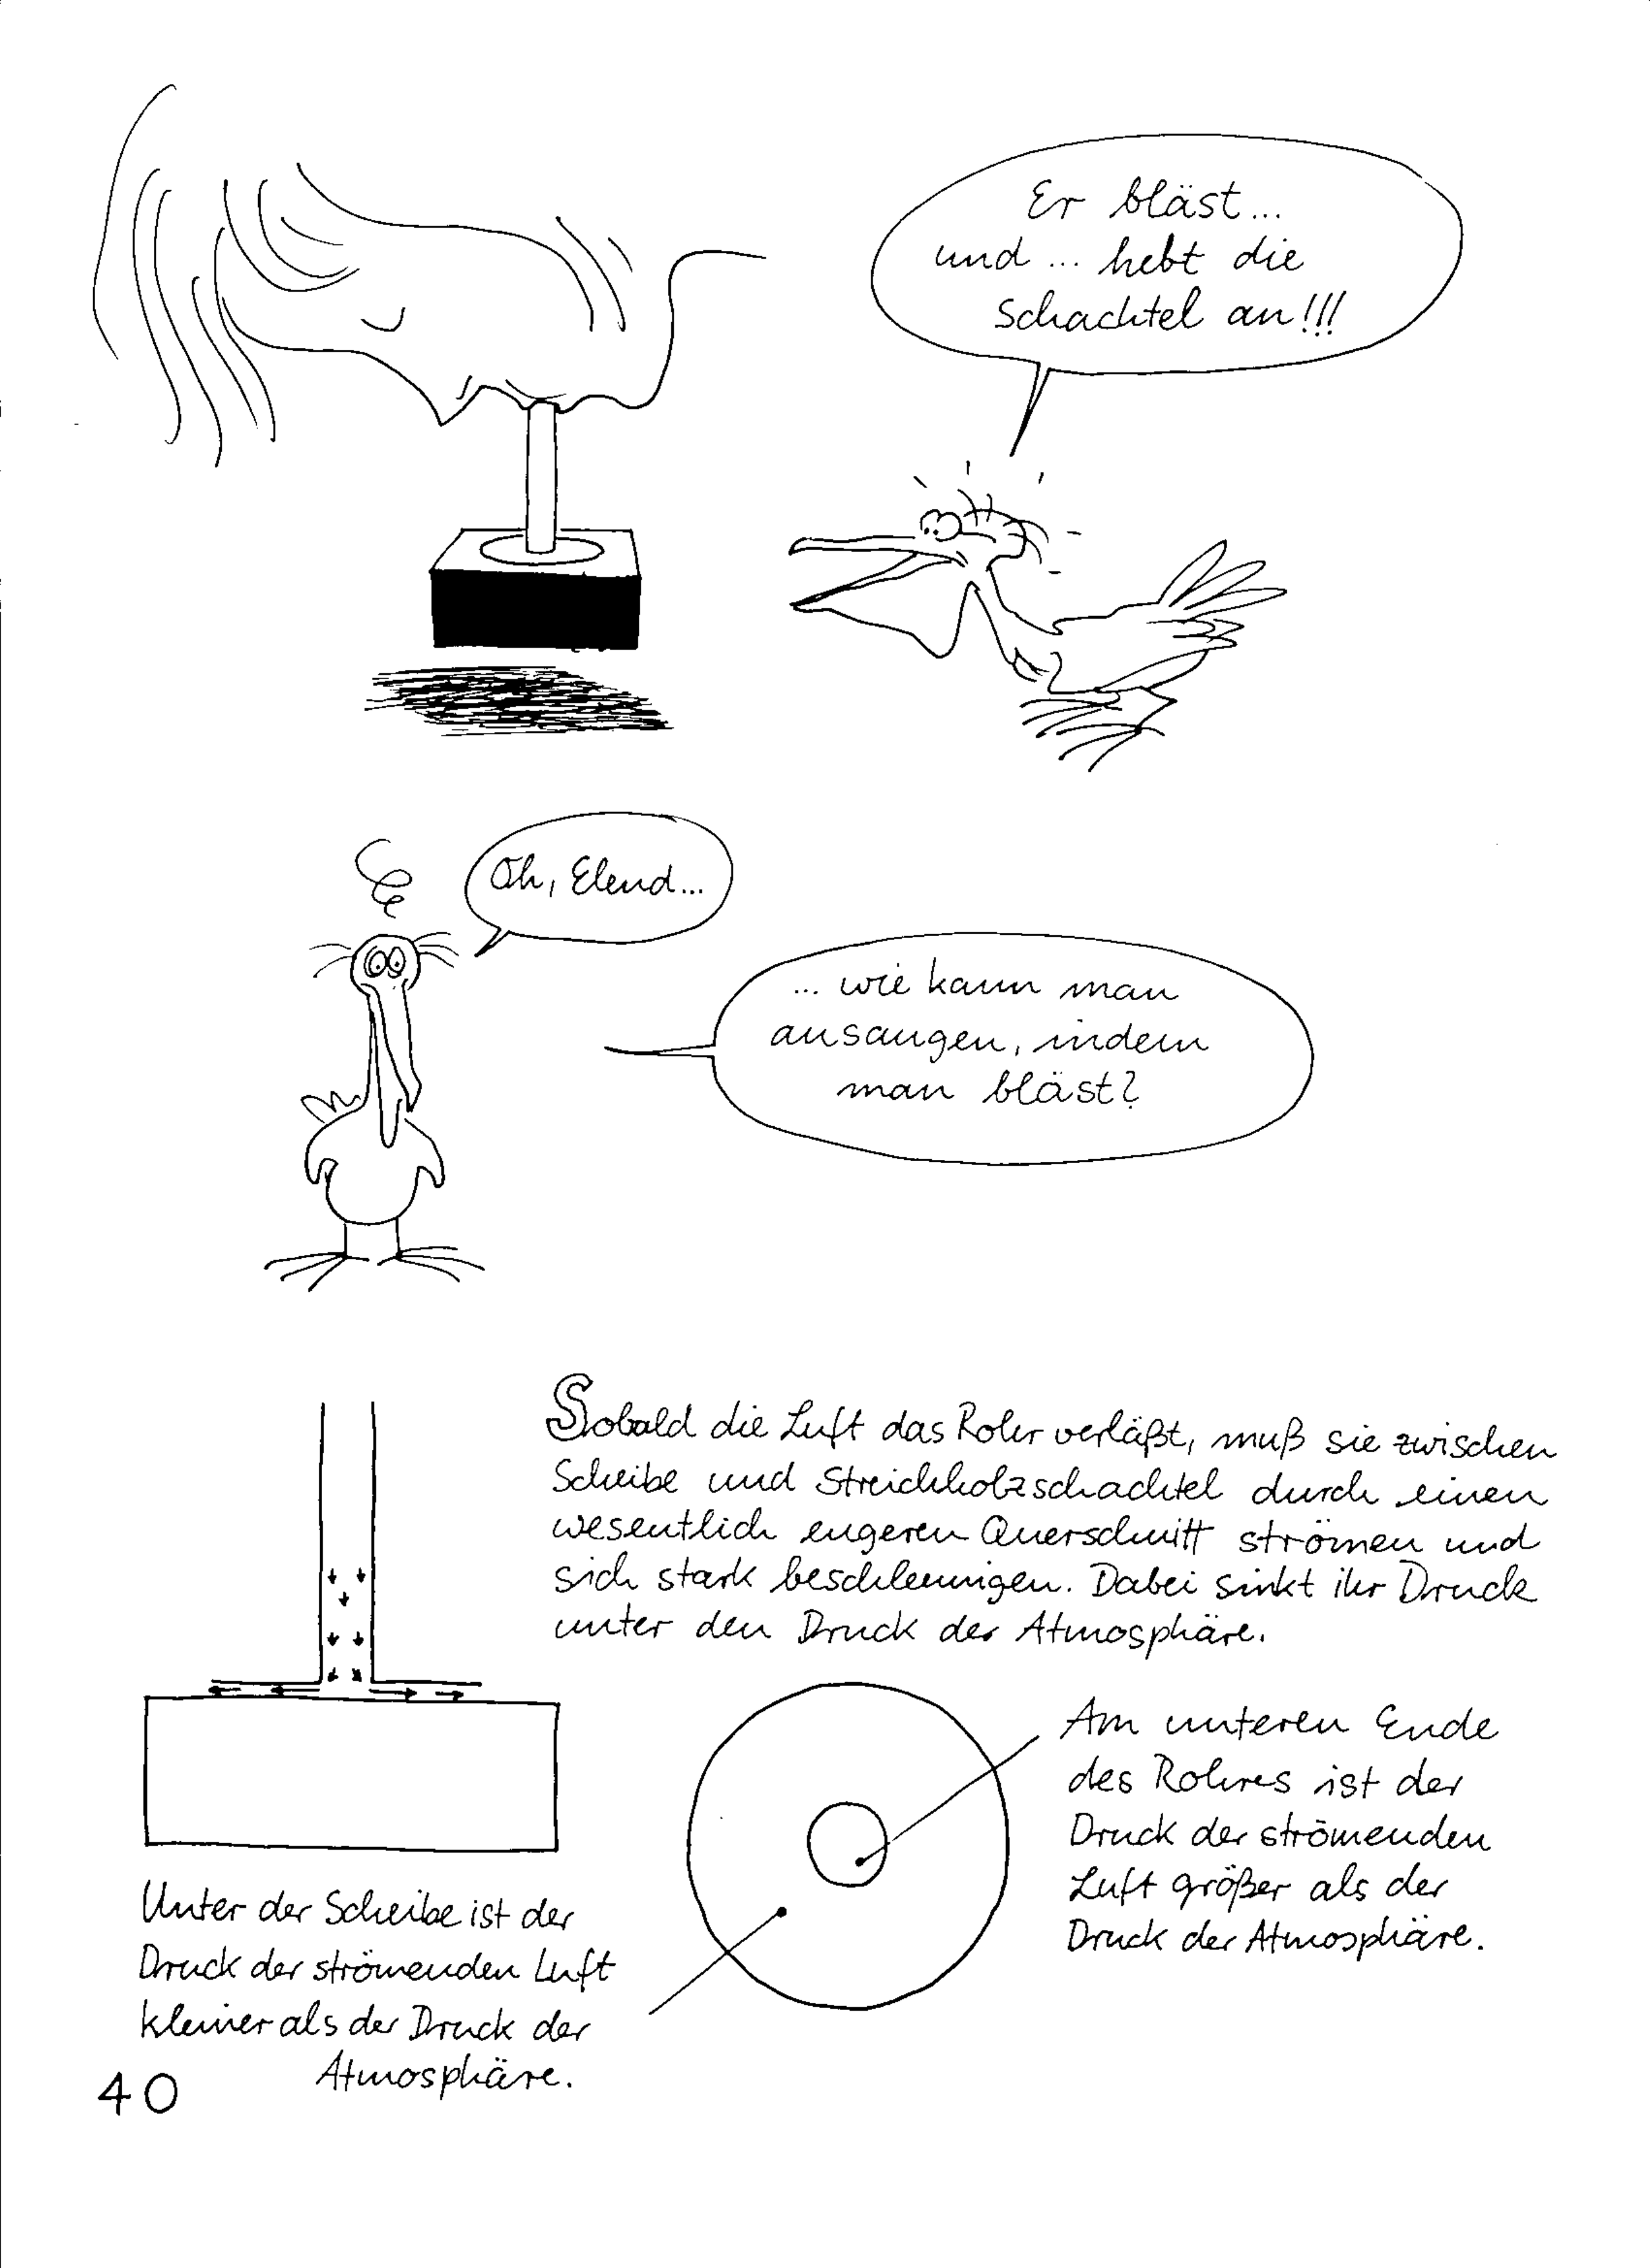 Er bläst...
und ... hebt die
Schachtel an!!!
Oh, Elend...
... wie kann man
ansaugen, indem
man bläst?
Sobald die Luft das Rohr verläßt, muß sie zwischen
Scheibe und Streichholzschachtel durch einen
wesentlich engeren Querschnitt strömen und
sich stark beschleunigen. Dabei sinkt ihr Druck
unter den Druck der Atmosphäre.
Am unteren Ende
des Rohres ist der
Druck der strömenden
Luft größer als der
Druck der Atmosphäre.
Unter der Scheibe ist der
Druck der strömenden Luft
kleiner als der Druck der
Atmosphäre.
40